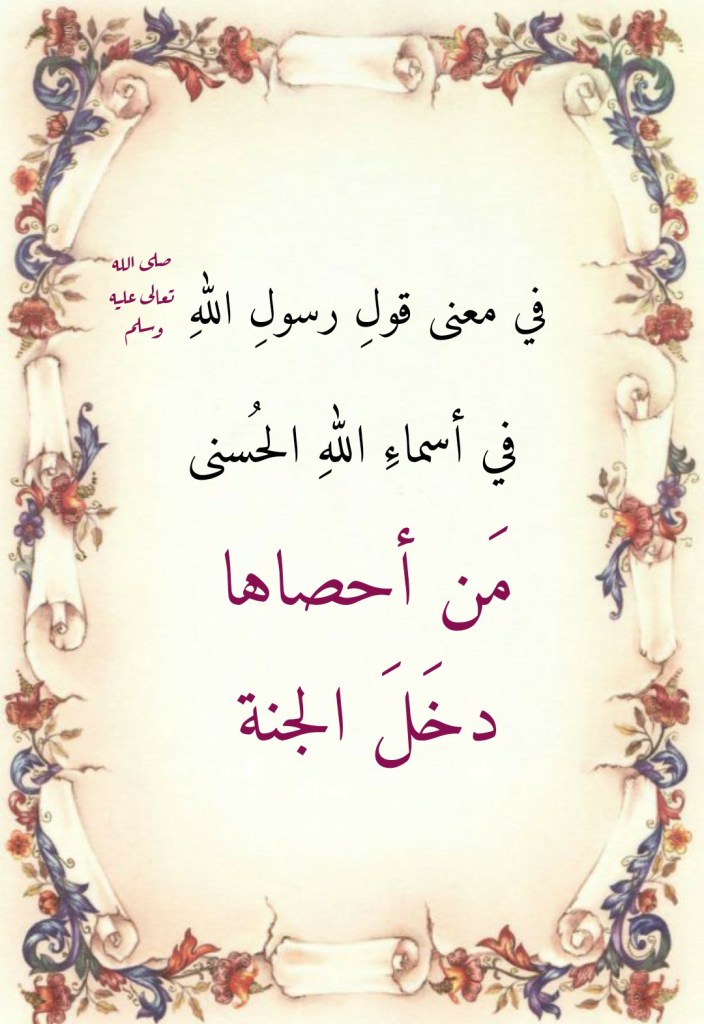 في معنى قولِ رسولِ اللهِ
صلى الله
تعالى عليه
وسلم
في أسماءِ اللهِ الحُسنى
مَن أحصاها
دخَلَ الجنة